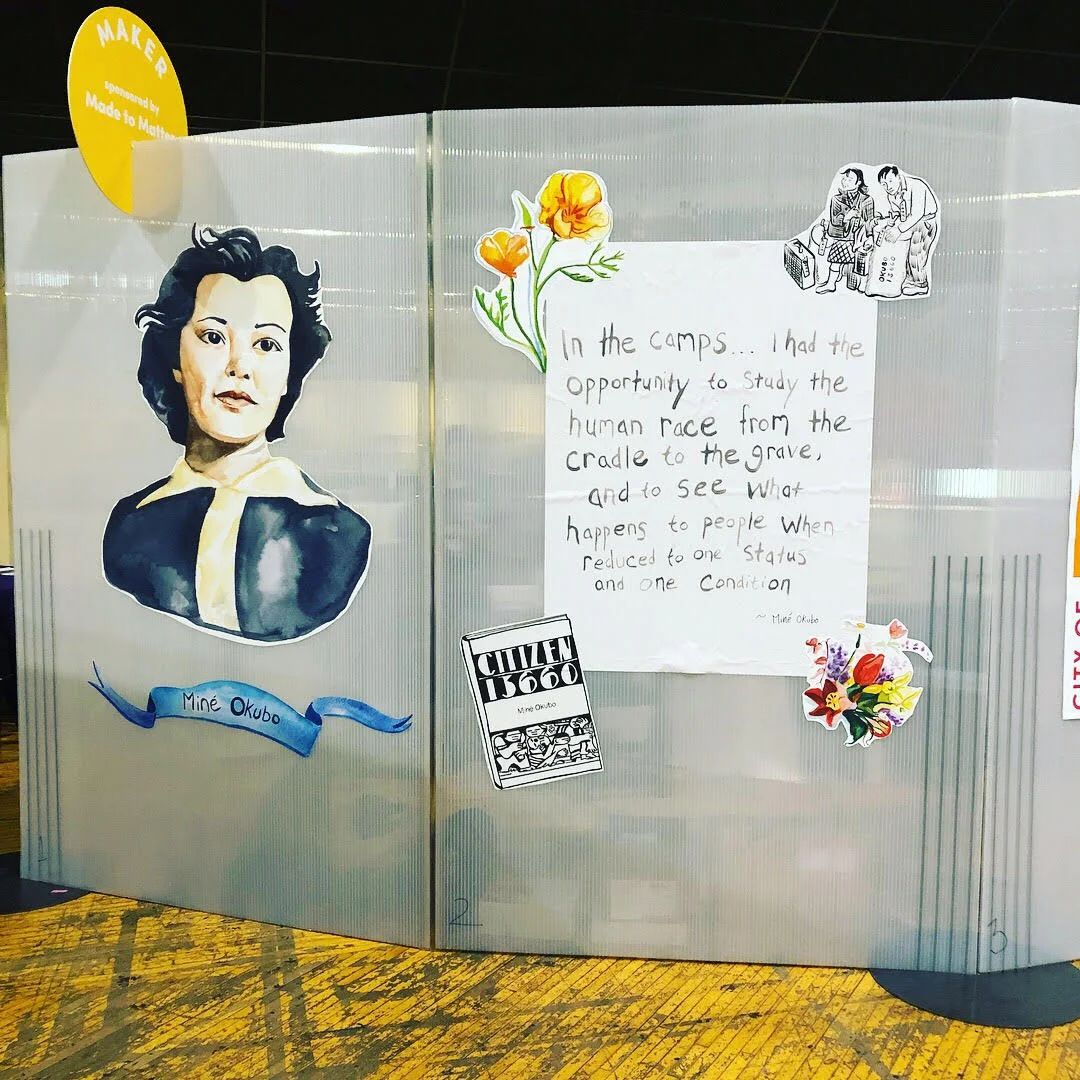 MAKER
sponsored by
Made to Matter
Miné Okubo
In the camps... I had the
opportunity to study the
human race from the
cradle to the grave,
and to see what
happens to people when
reduced to one status
and one condition
~ Miné Okubo
OKUBO
13660
CITIZEN
13660
Miné Okubo
CITY OF
1
2
3